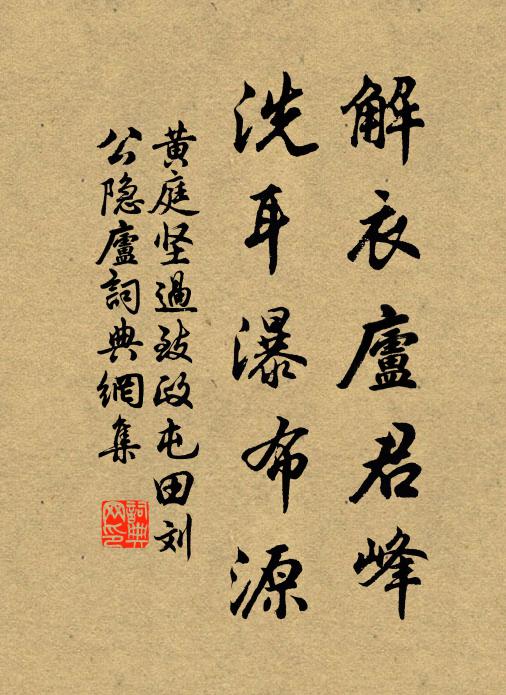 解衣廬君峰
洗耳瀑布源
黄庭坚過致政屯田刘
公隐廬詞典網集
詞典网印